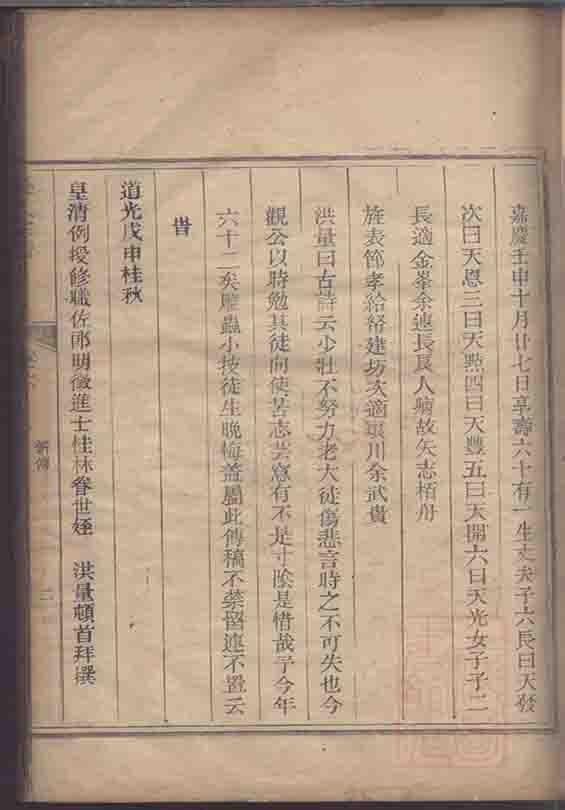 嘉慶壬申十月廿七日享壽六十有一生丈夫子六長曰天發
次曰天恩三曰天點四曰天豐五曰天開六曰天光女子子二
長適金峯余連長長人病故矢志栢舟
旌表節孝給帑建坊次適環川余武貴
洪量曰古詩云少壯不努力老大徒傷悲言時之不可失也今
觀公以時勉其徒向使苦志芸窻有不是寸陰是惜哉予今年
六十二矣雕蟲小技徒生晚悔盖屬此傳稿不禁留連不置云
旹
道光戊申桂秋
皇清例授修職佐郎明徵進士桂林眷世姪 洪量頓首拜撰
新傳
二